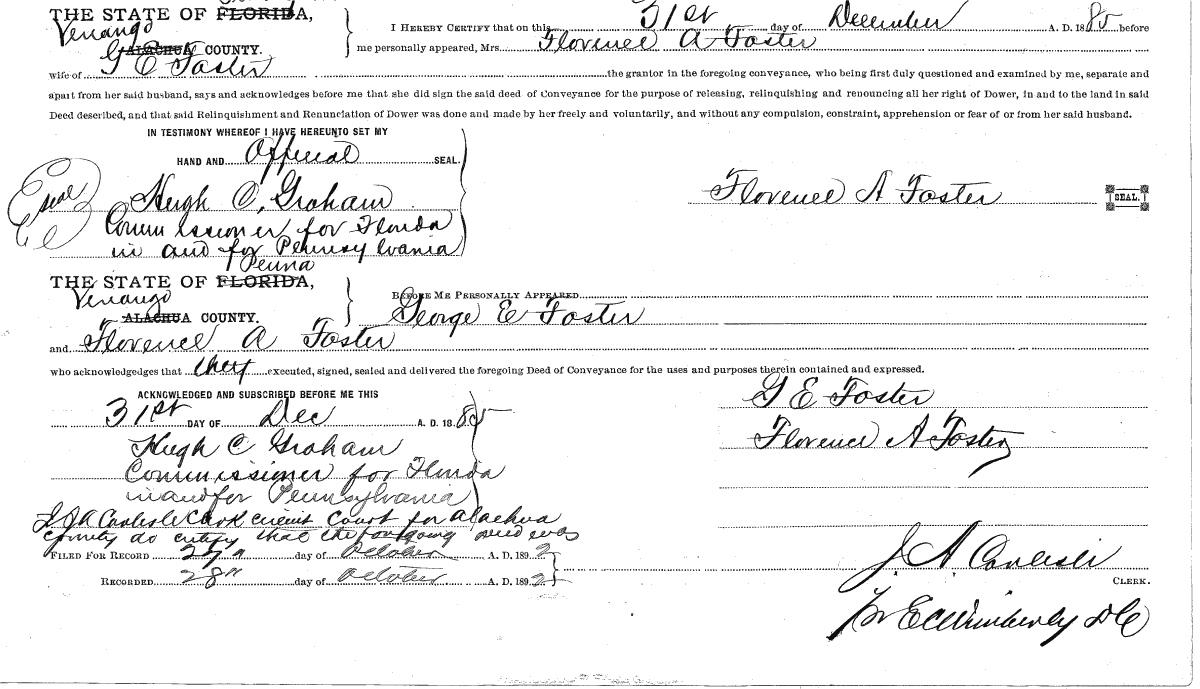 THE STATE OF FLORIDA,
Venango
ALACHUA COUNTY.
I HEREBY CERTIFY that on this 31st day of December A. D. 1885 before
me personally appeared, Mrs. Florence A Foster
wife of G E Foster the grantor in the foregoing conveyance, who being first duly questioned and examined by me, separate and
apart from her said husband, says and acknowledges before me that she did sign the said deed of Conveyance for the purpose of releasing, relinquishing and renouncing all her right of Dower, in and to the land in said
Deed described, and that said Relinquishment and Renunciation of Dower was done and made by her freely and voluntarily, and without any compulsion, constraint, apprehension or fear of or from her said husband.
IN TESTIMONY WHEREOF I HAVE HEREUNTO SET MY
HAND AND Official SEAL.
seal
Hugh C. Graham
Florence A Foster SEAL.
Commissioner for Florida
in and for Pennsylvania
Penna
THE STATE OF FLORIDA,
Venango
ALACHUA COUNTY.
BEFORE ME PERSONALLY APPEARED
George E Foster
and Florence A Foster
who acknowledges that they executed, signed, sealed and delivered the foregoing Deed of Conveyance for the uses and purposes therein contained and expressed.
ACKNOWLEDGED AND SUBSCRIBED BEFORE ME THIS
31st DAY OF Dec A. D. 1885
G E Foster
Hugh C Graham
Florence A Foster
Commissioner for Florida
in and for Pennsylvania
I J A Carlisle Clerk Circuit Court for Alachua
County do certify that the foregoing deed was
FILED FOR RECORD 27" day of October A. D. 1892
RECORDED 28" day of October A. D. 1892
J A Carlisle
CLERK.
Per E C Wimberly D C